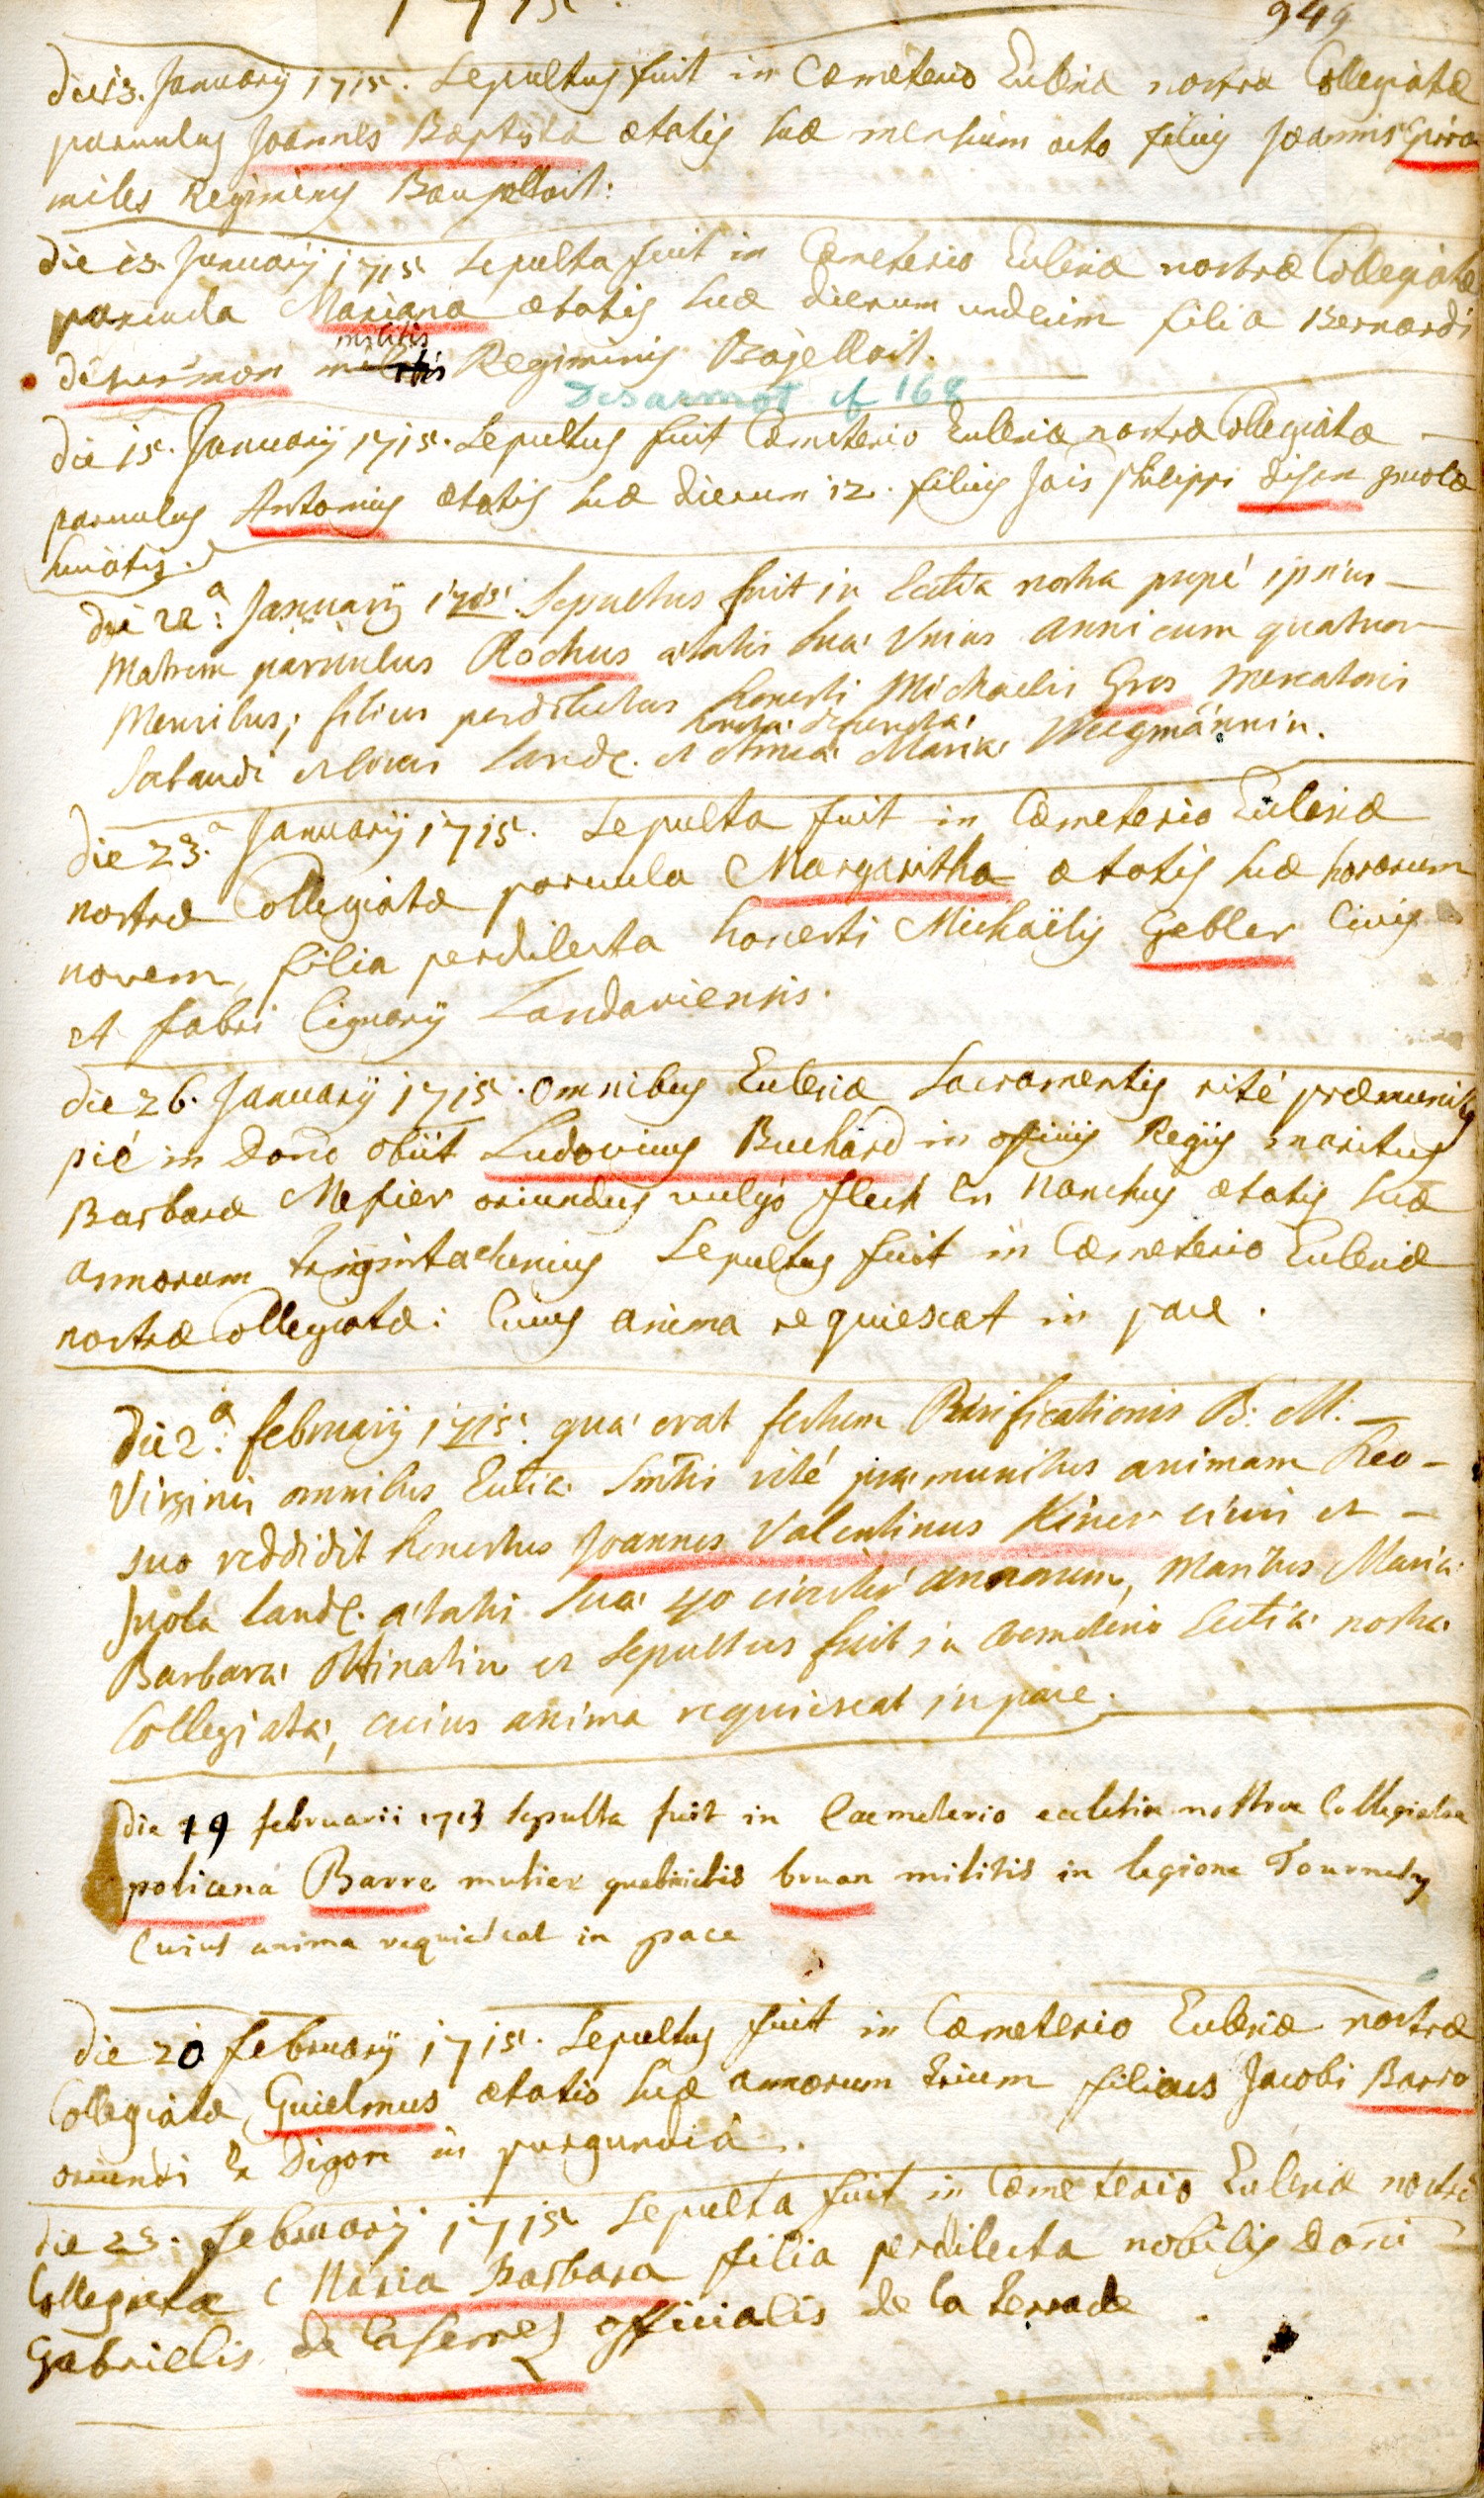 1715. 949
die 13. Januarÿ 1715. Sepultus fuit in Cæmeterio Eccleæ nostræ Collegiatæ
parvulus Joannes Baptista ætatis suæ mensium octo filius Joannis
miles Regiminis
die 13. Januarÿ 1715 Sepulta fuit in Cæmeterio Ecclesiæ nostræ Collegiatæ
parvula Mariana ætatis suæ dierum undecim filia Bernardi
militis
Regiminis Bajelloit.
Desarmot cf 168
die 15. Januarÿ 1715. Sepultus fuit Cæmeterio Ecclesiæ nostræ Collegiatæ
parvulus Antonius ætatis suæ dierum 12. filius Jois Philippi dison incolæ
huiatis.
die 22.a Januarÿ 1715. Sepultus fuit in Ecclia nostra propé ipsius
Matrem parvulus Rochus ætatis suæ Unius anni cum quatuor
Mensibus, filius perdilectus honesti Michaelis Gros Mercatoris
honestæ defunctæ
Sabaudi et civis Land. et Annæ Mariæ Weegmännin.
die 23.a Januarÿ 1715. Sepulta fuit in Cæmeterio Ecclesiæ
nostræ Collegiatæ parvula Margaritha ætatis suæ horarum
novem, filia perdilecta honesti Michaëlis Gebler Civis
et fabri lignarÿ Landaviensis.
die 26. Januarÿ 1715. omnibus Ecclesiæ Sacramentis rité præmunitus
pié in Dono obiit Ludovicus Buchard in officiis Regÿs maritus
Barbaræ Mefier oriundus vulgo flech en nanchus ætatis suæ
annorum Sepultus fuit in Cæmeterio Ecclesiæ
nostræ Collegiatæ: Cuius anima requiescat in pace.
die 2.a februarÿ 1715. qua erat festum Purificationis B: M:
Virginis omnibus Eccliæ Smtis rité præmunitus animam Deo
suo reddidit honestus Joannes Valentinus Kiner civis et
Incola Land. ætatis suæ 40 circiter annorum, Maritus Mariæ
Barbaræ Ottinatin et Sepultus fuit in Cœmeterio Eccliæ nostræ
Collegiatæ, cuius anima requiescat in pace.
die 19 februarii 1715 sepulta fuit in Caemeterio ecclesiæ nostræ Collegiatæ
policena Barre mulier bruan militis in legione
Cuius anima requiescat in pace
die 20 februarÿ 1715. Sepultus fuit in Cæmeterio Ecclesiæ nostræ
Collegiatæ, Guielmus ætatis suæ annorum trium filius Jacobi Barro
oriundi ex Digon in purgundiâ.
die 23. februarÿ 1715 Sepulta fuit in Cæmeterio Ecclesiæ nostræ
Collegiatæ Maria Barbara filia perdilecta nobilis Domi
Gabrielis de laserre officialis de la terrade.